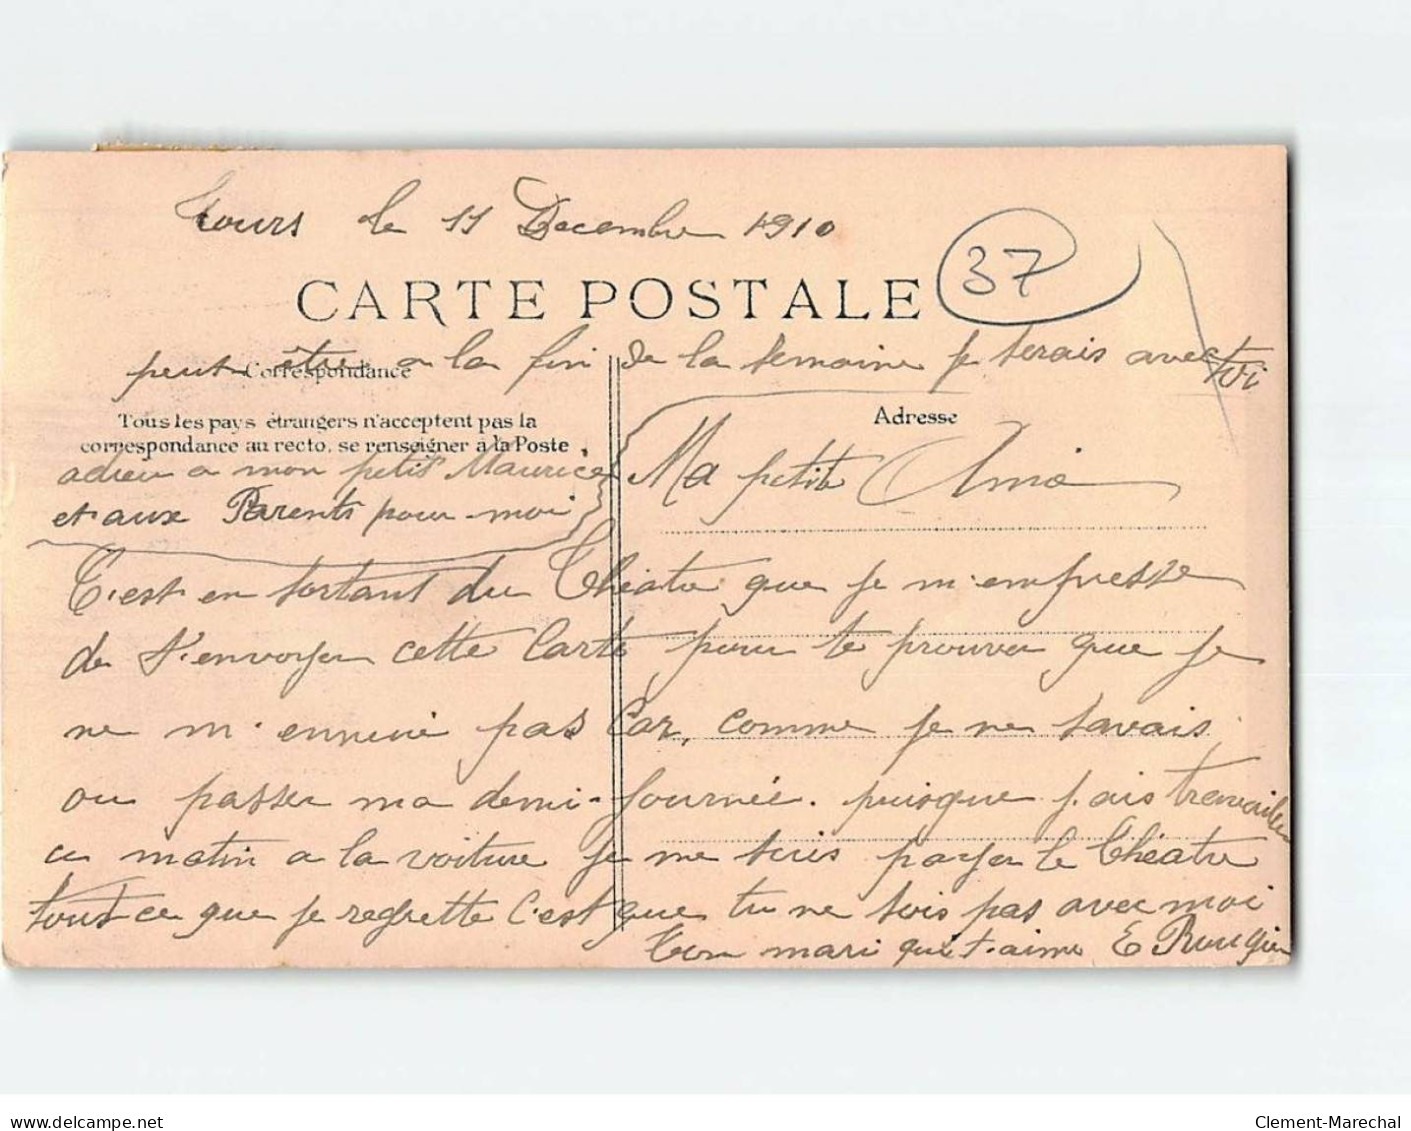 Tours le 11 Decembre 1910
CARTE POSTALE
37
peut être a la fin de la semaine je serais avec toi
Correspondance
Adresse
Tous les pays étrangers n'acceptent pas la
correspondance au recto, se renseigner à la Poste
adieu a mon petit Maurice
et aux Parents pour moi
Ma petite Amie
C'est en sortant du Théatre que je m'empresse
de t'envoyer cette Carte pour te prouver que je
ne m'ennuie pas Car, comme je ne savais
ou passer ma demi-journée. puisque j'ais travailler
ce matin a la voiture je me suis payer le Théatre
tout ce que je regrette c'est que tu ne sois pas avec moi
Ton mari qui t'aime E Rougier
www.delcampe.net
Clement-Marechal